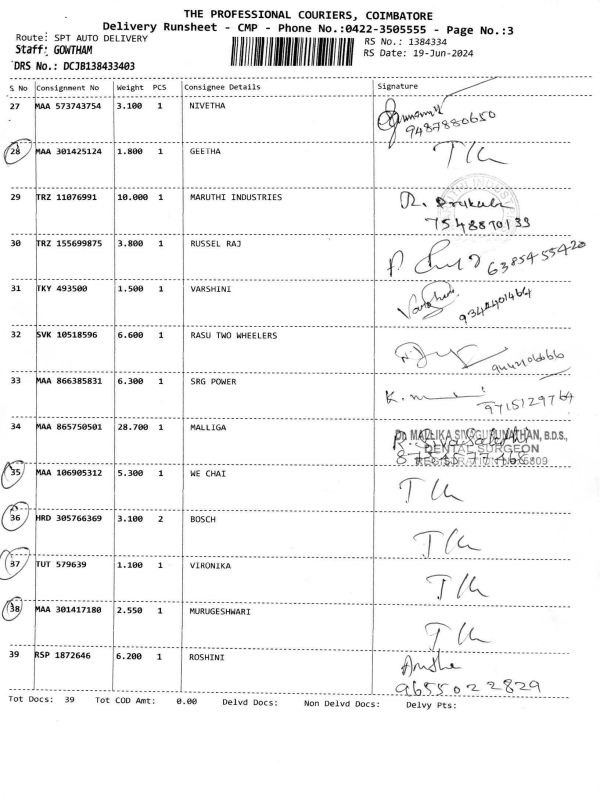 THE PROFESSIONAL COURIERS, COIMBATORE
Delivery Runsheet - CMP - Phone No.:0422-3505555 - Page No.:3
Route: SPT AUTO DELIVERY
RS No.: 1384334
Staff: GOWTHAM
RS Date: 19-Jun-2024
DRS No.: DCJB138433403
S No Consignment No Weight PCS Consignee Details Signature
27 MAA 573743754 3.100 1 NIVETHA
9487880650
28 MAA 301425124 1.800 1 GEETHA T/L
29 TRZ 11076991 10.000 1 MARUTHI INDUSTRIES R.
7548870133
30 TRZ 155699875 3.800 1 RUSSEL RAJ
6385455420
31 TKY 493500 1.500 1 VARSHINI
9342401464
32 SVK 10518596 6.600 1 RASU TWO WHEELERS
33 MAA 866385831 6.300 1 SRG POWER K.
9715129764
34 MAA 865750501 28.700 1 MALLIGA Dr. MALLIKA SIVAGURUNATHAN, B.D.S.,
DENTAL SURGEON
35 MAA 106905312 5.300 1 WE CHAI T/L
36 HRD 305766369 3.100 2 BOSCH T/L
37 TUT 579639 1.100 1 VIRONIKA T/L
38 MAA 301417180 2.550 1 MURUGESHWARI T/L
39 RSP 1872646 6.200 1 ROSHINI
9655022829
Tot Docs: 39 Tot COD Amt: 0.00 Delvd Docs: Non Delvd Docs: Delvy Pts: